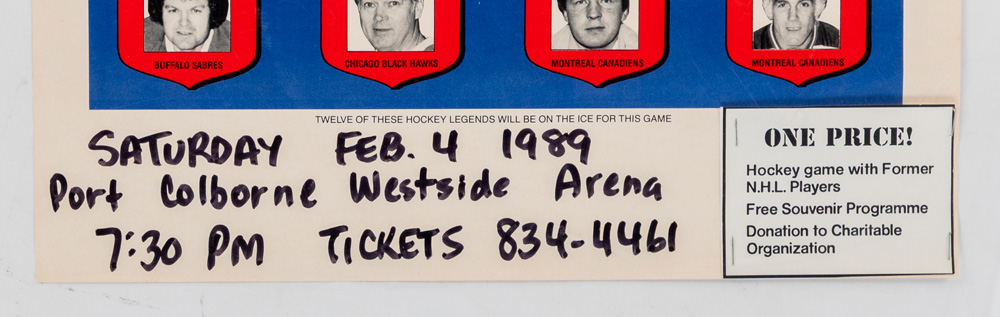 BUFFALO SABRES
CHICAGO BLACK HAWKS
MONTREAL CANADIENS
MONTREAL CANADIENS
TWELVE OF THESE HOCKEY LEGENDS WILL BE ON THE ICE FOR THIS GAME
SATURDAY FEB. 4 1989
Port Colborne Westside Arena
7:30 PM TICKETS 834-4461
ONE PRICE!
Hockey game with Former
N.H.L. Players
Free Souvenir Programme
Donation to Charitable
Organization